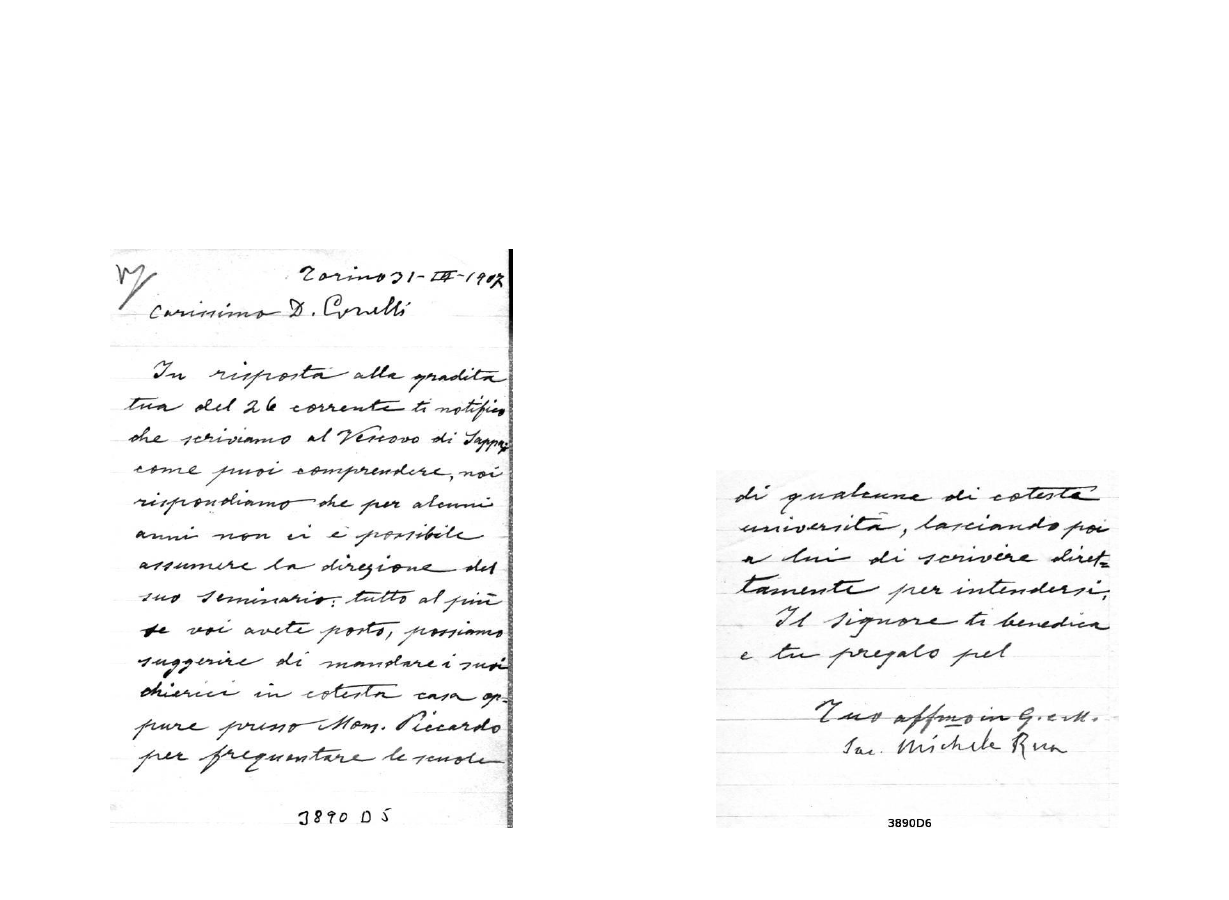 Torino 31-III-1907
Carissimo D. Conelli
In risposta alla gradita
tua del 26 corrente ti notifico
che scriviamo al Vescovo di Sappa;
come puoi comprendere, noi
rispondiamo che per alcuni
anni non ci è possibile
assumere la direzione del
suo Seminario; tutto al più
se voi avete posto, possiamo
suggerire di mandare i suoi
chierici in cotesta casa op-
pure presso Mons. Riccardo
per frequentare le scuole
3890 D 5
di qualcune di cotesta
università, lasciando poi
a lui di scrivere diret=
tamente per intendersi.
Il Signore ti benedica
e tu pregalo pel
Tuo affmo in G. e M.
Sac. Michele Rua
3890D6